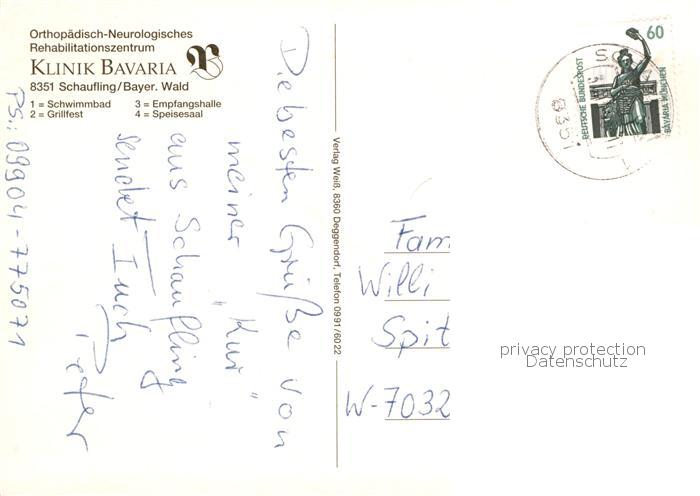 Orthopädisch-Neurologisches
Rehabilitationszentrum
KLINIK BAVARIA
8351 Schaufling/Bayer. Wald
1 = Schwimmbad 3 = Empfangshalle
2 = Grillfest 4 = Speisesaal
Die besten Grüße von
meiner "Kur"
aus Schaufling
sendet Euch
Peter
PS.: 09904-775071
Verlag Weiß, 8360 Deggendorf, Telefon 0991/6022
60
DEUTSCHE BUNDESPOST
BAVARIA MÜNCHEN
8351
Fam
Willi
Spit
W-7032
privacy protection
Datenschutz